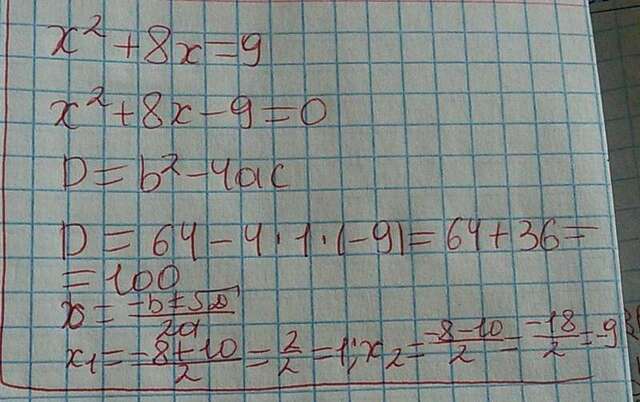 x² + 8x = 9
x² + 8x - 9 = 0
D = b² - 4ac
D = 64 - 4 · 1 · (-9) = 64 + 36 =
= 100
x = (-b ± √D)/2a
x₁ = (-8 + 10)/2 = 2/2 = 1; x₂ = (-8 - 10)/2 = -18/2 = -9